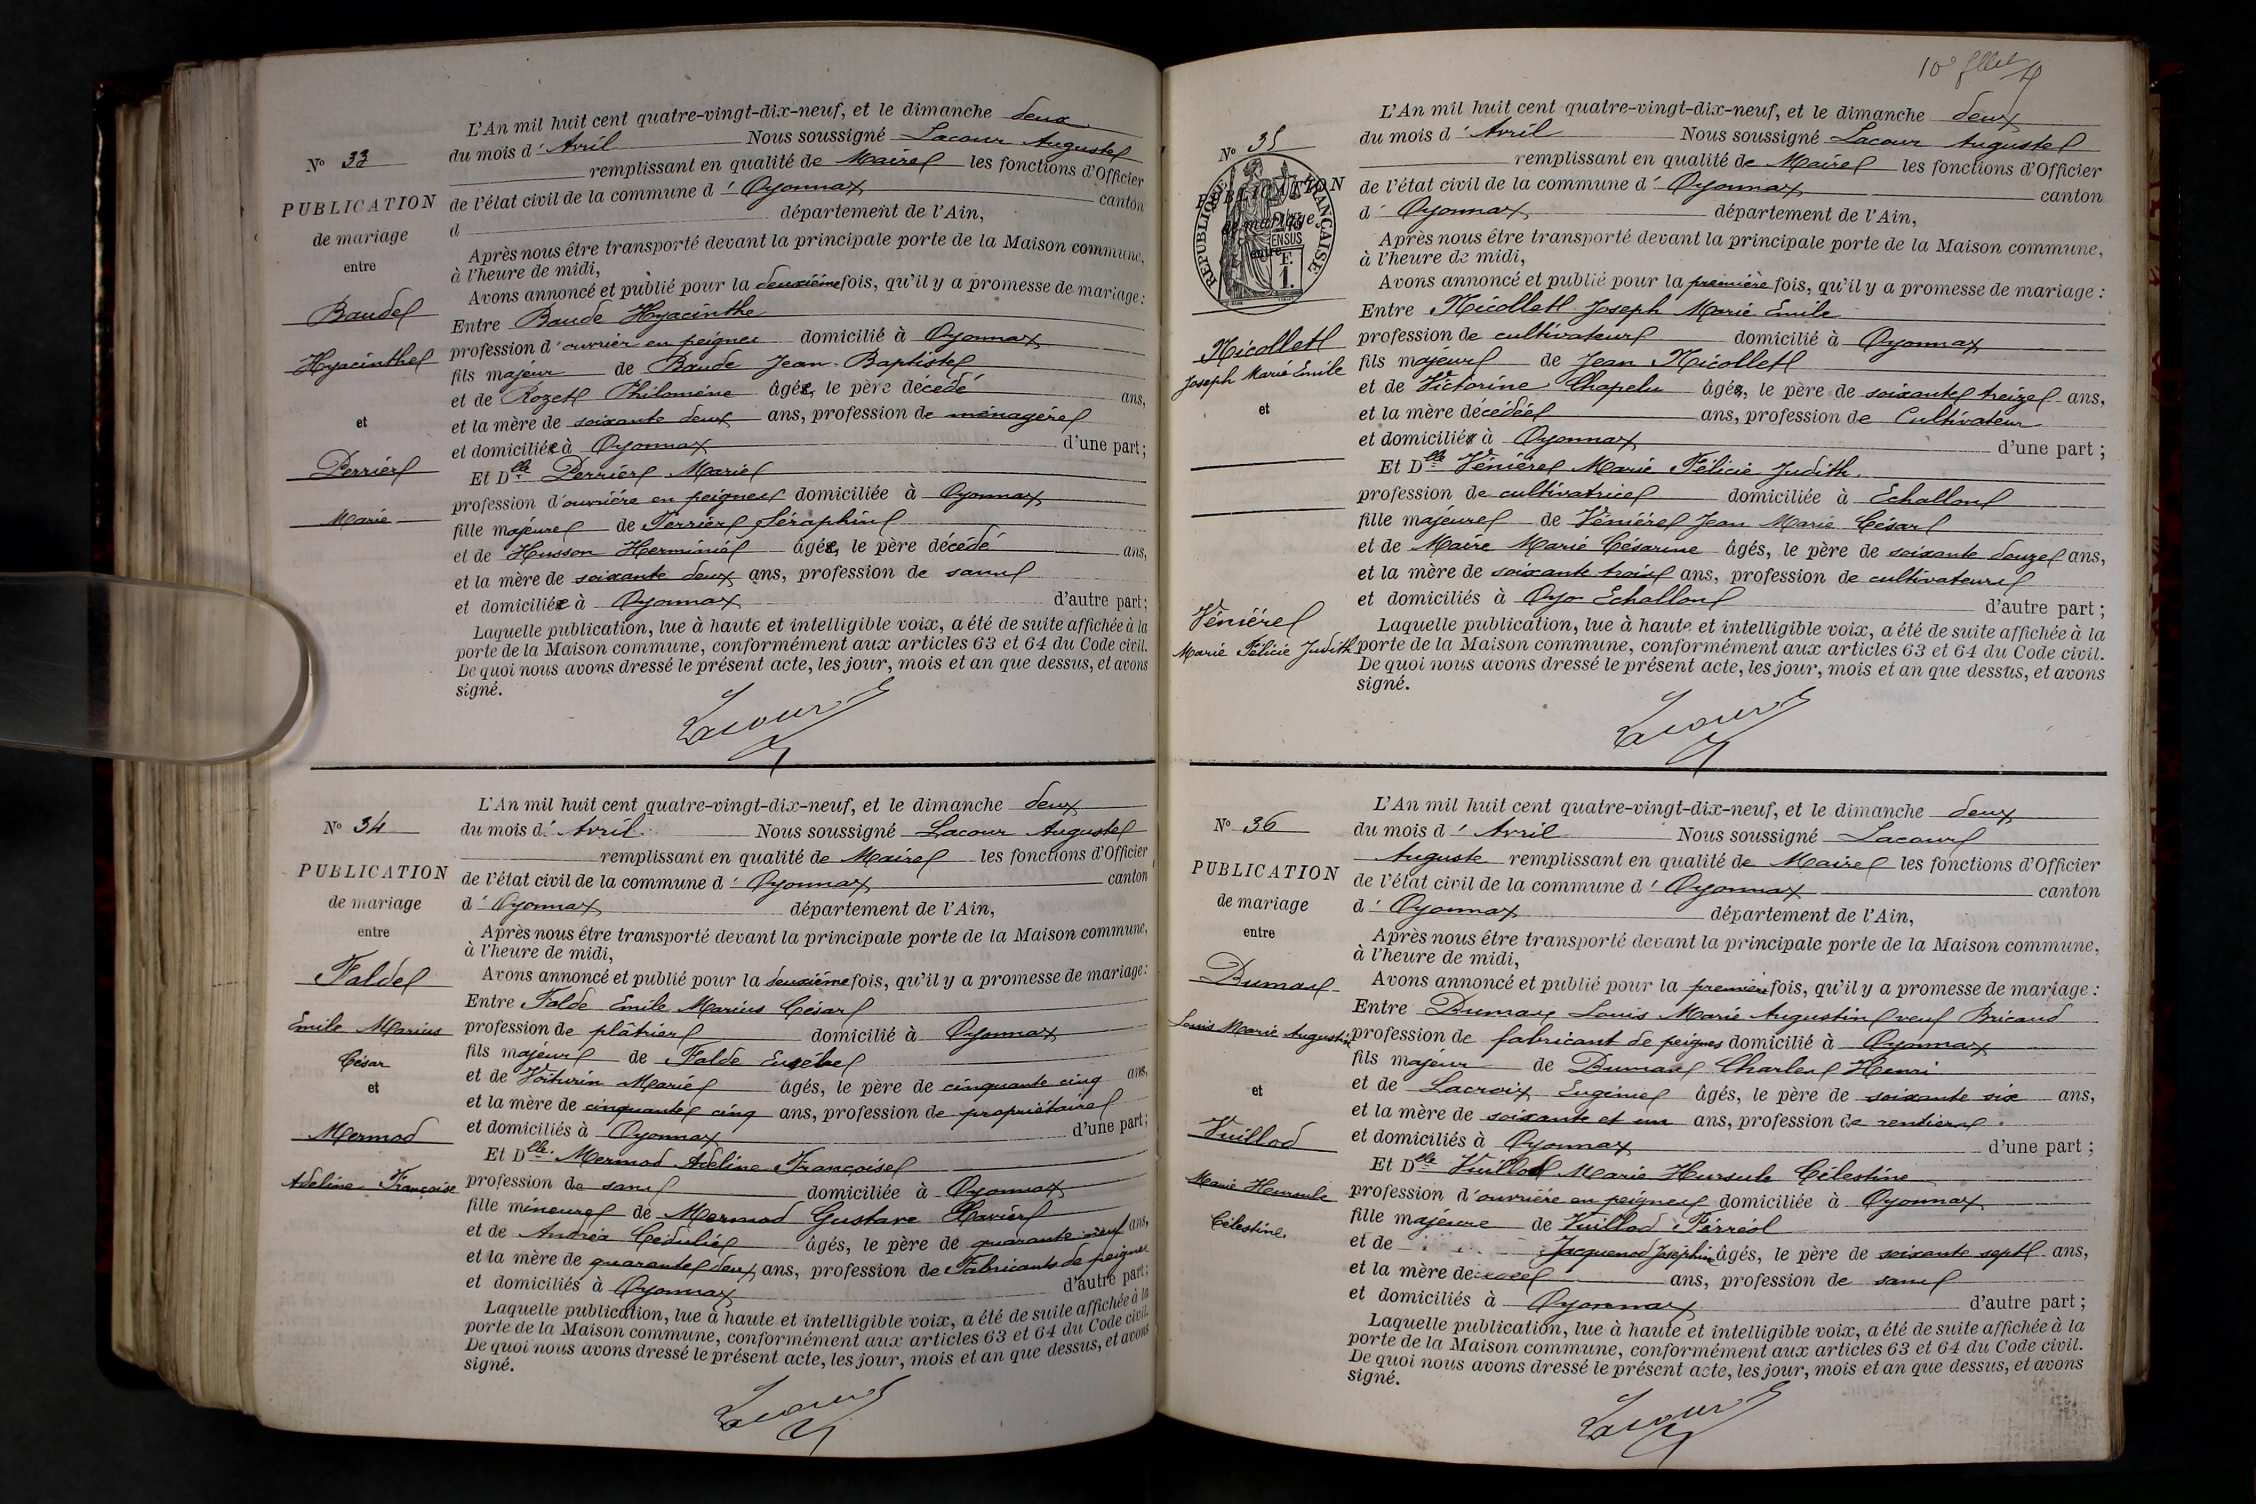 L'An mil huit cent quatre-vingt-dix-neuf, et le dimanche deux
du mois d'Avril Nous soussigné Lacour Auguste
remplissant en qualité de Maire les fonctions d'Officier
de l'état civil de la commune d'Oyonnax canton
d département de l'Ain,
Après nous être transporté devant la principale porte de la Maison commune,
à l'heure de midi,
Avons annoncé et publié pour la deuxième fois, qu'il y a promesse de mariage :
Entre Baude Hyacinthe
profession d'ouvrier en peignes domicilié à Oyonnax
fils majeur de Baude Jean-Baptiste
et de Rozet Philomène âgée, le père décédé ans,
et la mère de soixante deux ans, profession de ménagère
et domiciliée à Oyonnax d'une part ;
Et Dlle Perrier Marie
profession d'ouvrière en peignes domiciliée à Oyonnax
fille majeure de Perrier Séraphin
et de Husson Herminie âgée, le père décédé ans,
et la mère de soixante deux ans, profession de sans
et domiciliée à Oyonnax d'autre part ;
Laquelle publication, lue à haute et intelligible voix, a été de suite affichée à la
porte de la Maison commune, conformément aux articles 63 et 64 du Code civil.
De quoi nous avons dressé le présent acte, les jour, mois et an que dessus, et avons
signé.
Lacour
No 33
PUBLICATION
de mariage
entre
Baude
Hyacinthe
et
Perrier
Marie
L'An mil huit cent quatre-vingt-dix-neuf, et le dimanche deux
du mois d'Avril Nous soussigné Lacour Auguste
remplissant en qualité de Maire les fonctions d'Officier
de l'état civil de la commune d'Oyonnax canton
d'Oyonnax département de l'Ain,
Après nous être transporté devant la principale porte de la Maison commune,
à l'heure de midi,
Avons annoncé et publié pour la deuxième fois, qu'il y a promesse de mariage :
Entre Falde Emile Marius César
profession de plâtrier domicilié à Oyonnax
fils majeur de Falde Eusèbe
et de Voiturin Marie âgés, le père de cinquante cinq ans,
et la mère de cinquante cinq ans, profession de propriétaire
et domiciliés à Oyonnax d'une part ;
Et Dlle Mermod Adeline Françoise
profession de sans domiciliée à Oyonnax
fille mineure de Mermod Gustave Xavier
et de Andréa Cédulie âgés, le père de quarante neuf ans,
et la mère de quarante deux ans, profession de Fabricants de peignes
et domiciliés à Oyonnax d'autre part ;
Laquelle publication, lue à haute et intelligible voix, a été de suite affichée à la
porte de la Maison commune, conformément aux articles 63 et 64 du Code civil.
De quoi nous avons dressé le présent acte, les jour, mois et an que dessus, et avons
signé.
Lacour
No 34
PUBLICATION
de mariage
entre
Falde
Emile Marius
César
et
Mermod
Adeline Françoise
10e
L'An mil huit cent quatre-vingt-dix-neuf, et le dimanche deux
du mois d'Avril Nous soussigné Lacour Auguste
remplissant en qualité de Maire les fonctions d'Officier
de l'état civil de la commune d'Oyonnax canton
d'Oyonnax département de l'Ain,
Après nous être transporté devant la principale porte de la Maison commune,
à l'heure de midi,
Avons annoncé et publié pour la première fois, qu'il y a promesse de mariage :
Entre Nicollet Joseph Marie Emile
profession de cultivateur domicilié à Oyonnax
fils majeur de Jean Nicollet
et de Victorine Chapelu âgé, le père de soixante treize ans,
et la mère décédée ans, profession de Cultivateur
et domicilié à Oyonnax d'une part ;
Et Dlle Vénière Marie Félicie Judith
profession de cultivatrice domiciliée à Echallon
fille majeure de Vénière Jean Marie César
et de Maire Marie Césarine âgés, le père de soixante douze ans,
et la mère de soixante trois ans, profession de cultivateurs
et domiciliés à Oyo Echallon d'autre part ;
Laquelle publication, lue à haute et intelligible voix, a été de suite affichée à la
porte de la Maison commune, conformément aux articles 63 et 64 du Code civil.
De quoi nous avons dressé le présent acte, les jour, mois et an que dessus, et avons
signé.
Lacour
No 35
PUBLICATION
de mariage
entre
RÉPUBLIQUE FRANÇAISE
F.
1.
Nicollet
Joseph Marie Emile
et
Vénière
Marie Félicie Judith
L'An mil huit cent quatre-vingt-dix-neuf, et le dimanche deux
du mois d'Avril Nous soussigné Lacour
Auguste remplissant en qualité de Maire les fonctions d'Officier
de l'état civil de la commune d'Oyonnax canton
d'Oyonnax département de l'Ain,
Après nous être transporté devant la principale porte de la Maison commune,
à l'heure de midi,
Avons annoncé et publié pour la première fois, qu'il y a promesse de mariage :
Entre Dumas Louis Marie Augustin veuf Bricaud
profession de fabricant de peignes domicilié à Oyonnax
fils majeur de Dumas Charles Henri
et de Lacroix Eugénie âgés, le père de soixante six ans,
et la mère de soixante et un ans, profession de rentiers
et domiciliés à Oyonnax d'une part ;
Et Dlle Vuillod Marie Hursule Célestine
profession d'ouvrière en peignes domiciliée à Oyonnax
fille majeure de Vuillod Ferréol
et de Jacquenod Joséphine âgés, le père de soixante sept ans,
et la mère de ans, profession de sans
et domiciliés à Oyonnax d'autre part ;
Laquelle publication, lue à haute et intelligible voix, a été de suite affichée à la
porte de la Maison commune, conformément aux articles 63 et 64 du Code civil.
De quoi nous avons dressé le présent acte, les jour, mois et an que dessus, et avons
signé.
Lacour
No 36
PUBLICATION
de mariage
entre
Dumas
Louis Marie Augustin
et
Vuillod
Marie Heursule
Célestine